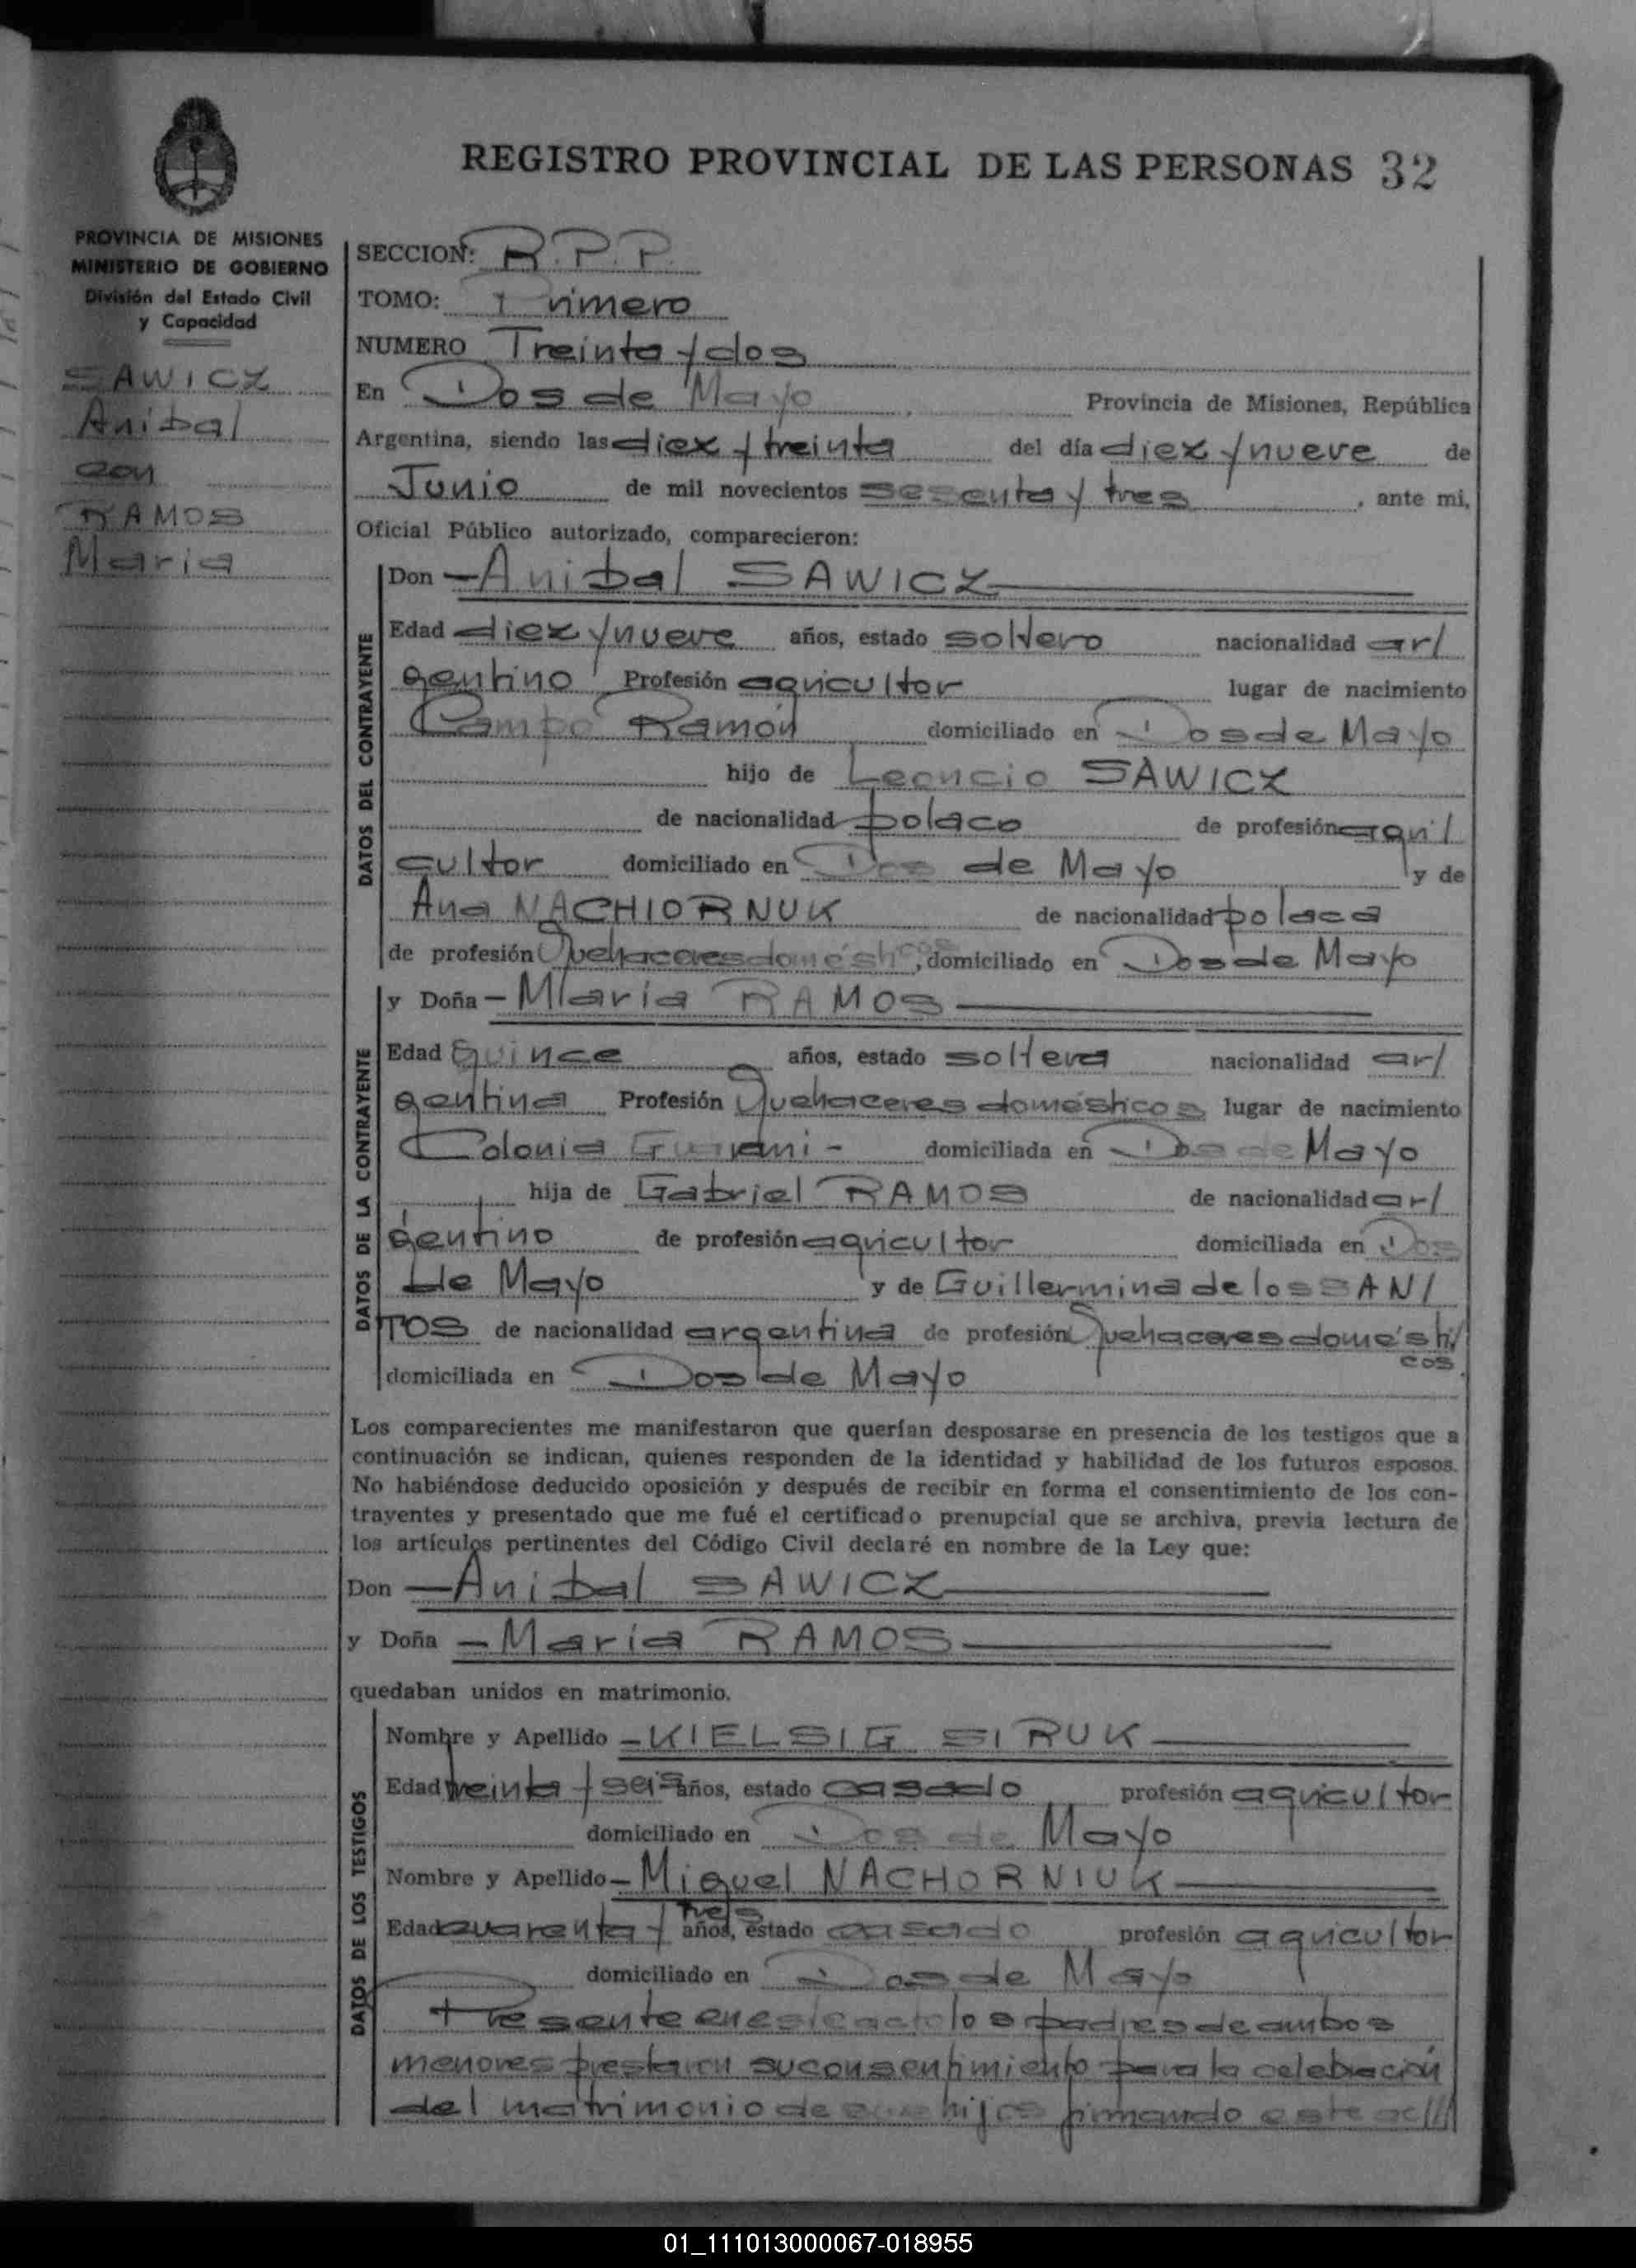 REGISTRO PROVINCIAL DE LAS PERSONAS 32
PROVINCIA DE MISIONES
MINISTERIO DE GOBIERNO
División del Estado Civil
y Capacidad
SAWICZ
Anibal
con
RAMOS
Maria
SECCION: R.P.P.
TOMO: Primero
NUMERO Treinta y dos
En Dos de Mayo Provincia de Misiones, República
Argentina, siendo las diez y treinta del día diez y nueve de
Junio de mil novecientos sesenta y tres, ante mi,
Oficial Público autorizado, comparecieron:
DATOS DEL CONTRAYENTE
Don — Anibal SAWICZ
Edad diez y nueve años, estado soltero nacionalidad ar/
gentino Profesión agricultor lugar de nacimiento
Campo Ramón domiciliado en Dos de Mayo
hijo de Leoncio SAWICZ
de nacionalidad polaco de profesión agri/
cultor domiciliado en Dos de Mayo y de
Ana NACHIORNUK de nacionalidad polaca
de profesión Quehaceres domésticos, domiciliado en Dos de Mayo
DATOS DE LA CONTRAYENTE
y Doña — Maria RAMOS
Edad Quince años, estado soltera nacionalidad ar/
gentina Profesión Quehaceres domésticos lugar de nacimiento
Colonia Guarani - domiciliada en Dos de Mayo
hija de Gabriel RAMOS de nacionalidad ar/
gentino de profesión agricultor domiciliada en Dos
de Mayo y de Guillermina de los SAN/
TOS de nacionalidad argentina de profesión Quehaceres domésti/
cos
domiciliada en Dos de Mayo
Los comparecientes me manifestaron que querían desposarse en presencia de los testigos que a
continuación se indican, quienes responden de la identidad y habilidad de los futuros esposos.
No habiéndose deducido oposición y después de recibir en forma el consentimiento de los con-
trayentes y presentado que me fué el certificado prenupcial que se archiva, previa lectura de
los artículos pertinentes del Código Civil declaré en nombre de la Ley que:
Don — Anibal SAWICZ
y Doña — Maria RAMOS
quedaban unidos en matrimonio.
DATOS DE LOS TESTIGOS
Nombre y Apellido — KIELSIG SIRUK
Edad treinta y seis años, estado casado profesión agricultor
domiciliado en Dos de Mayo
Nombre y Apellido — Miguel NACHORNIUK
Edad cuarenta y tres años, estado casado profesión agricultor
domiciliado en Dos de Mayo
Presente en este acto los padres de ambos
menores prestaron su consentimiento para la celebración
del matrimonio de sus hijos firmando este ac///
01_111013000067-018955